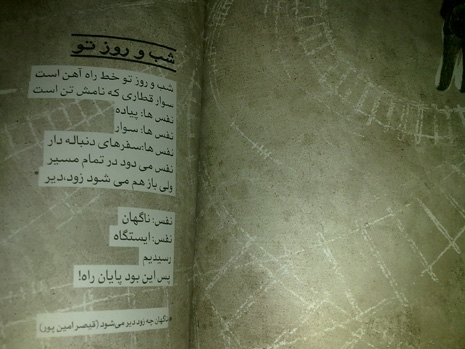 شب و روز تو
شب و روز تو خط راه آهن است
سوار قطاری که نامش تن است
نفس ها: پیاده
نفس ها: سوار
نفس ها:سفرهای دنباله دار
نفس می دود در تمام مسیر
ولی باز هم می شود زود،دیر
نفس: ناگهان
نفس: ایستگاه
رسیدیم
پس این بود پایان راه!
*ناگهان چه زود دیر می‌شود (قیصر امین پور)